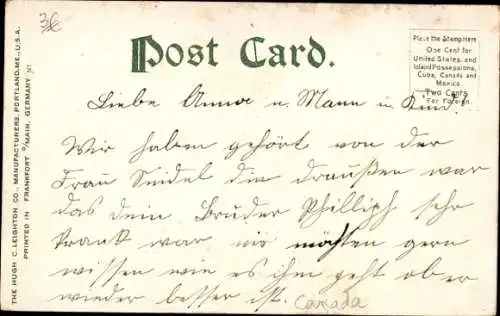 3€
Post Card.
Place the Stamp Here
One Cent for
United States, and
Island Possessions,
Cuba, Canada and
Mexico.
Two Cents
For Foreign.
THE HUGH C. LEIGHTON CO., MANUFACTURERS, PORTLAND, ME., U.S.A.
PRINTED IN FRANKFORT O/MAIN, GERMANY
Liebe Anna u. Mann u. Kind!
Wir haben gehört von der
Frau Seidel die draußen war
das dein Bruder Philliph sehr
krank war wir möchten gern
wissen wie es ihm geht ob er
wieder besser ist.
Canada